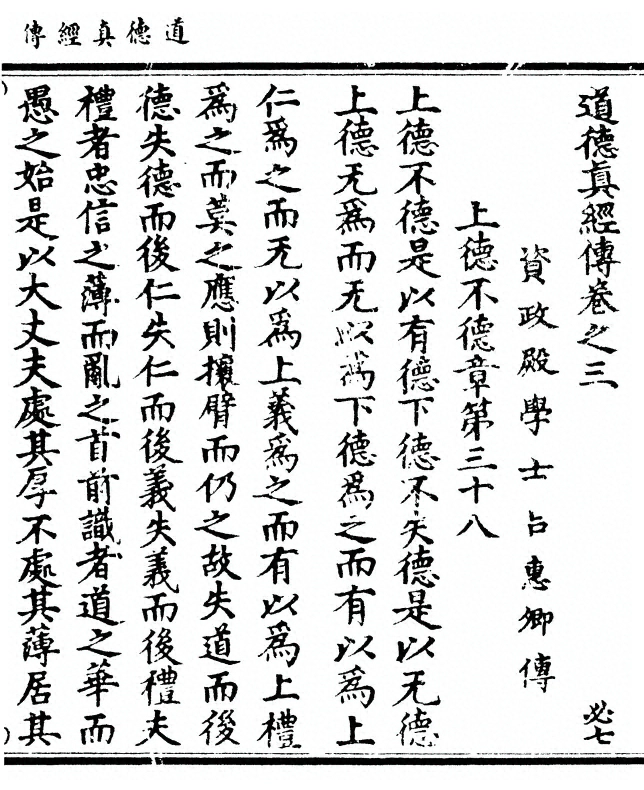 道德真經傳
道德真經傳卷之三 必七
資政殿學士呂惠卿傳
上德不德章第三十八
上德不德是以有德下德不失德是以无德
上德无為而无以為下德為之而有以為上
仁爲之而无以爲上義爲之而有以爲上禮
爲之而莫之應則攘臂而仍之故失道而後
德失德而後仁失仁而後義失義而後禮夫
禮者忠信之薄而亂之首前識者道之華而
愚之始是以大丈夫處其厚不處其薄居其